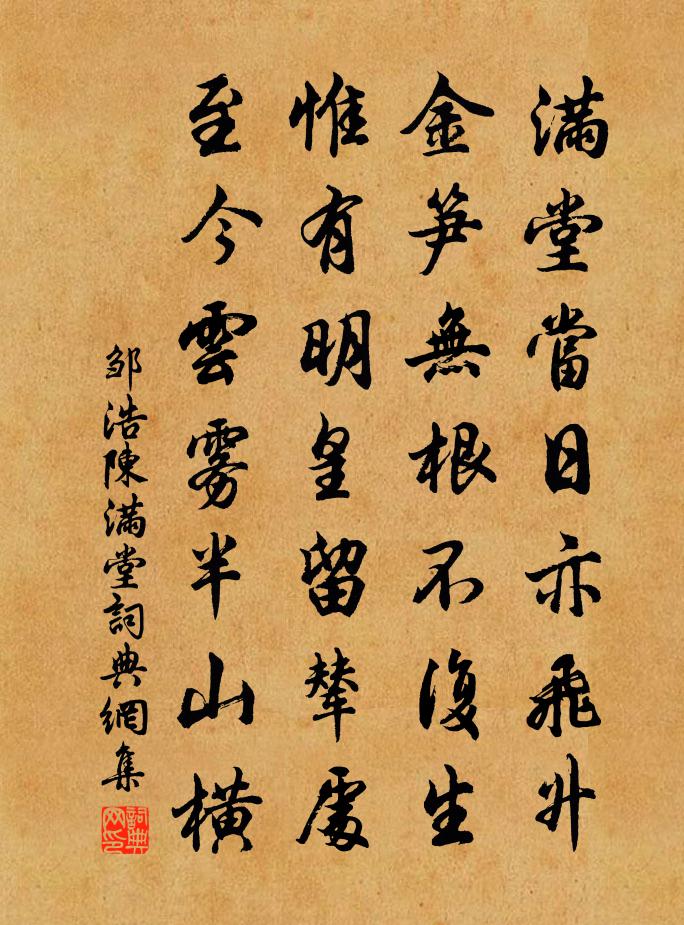 滿堂當日亦飛升
金笋無根不復生
惟有明皇留輦處
至今雲霧半山橫
鄒浩陳滿堂詞典網集
詞典网印